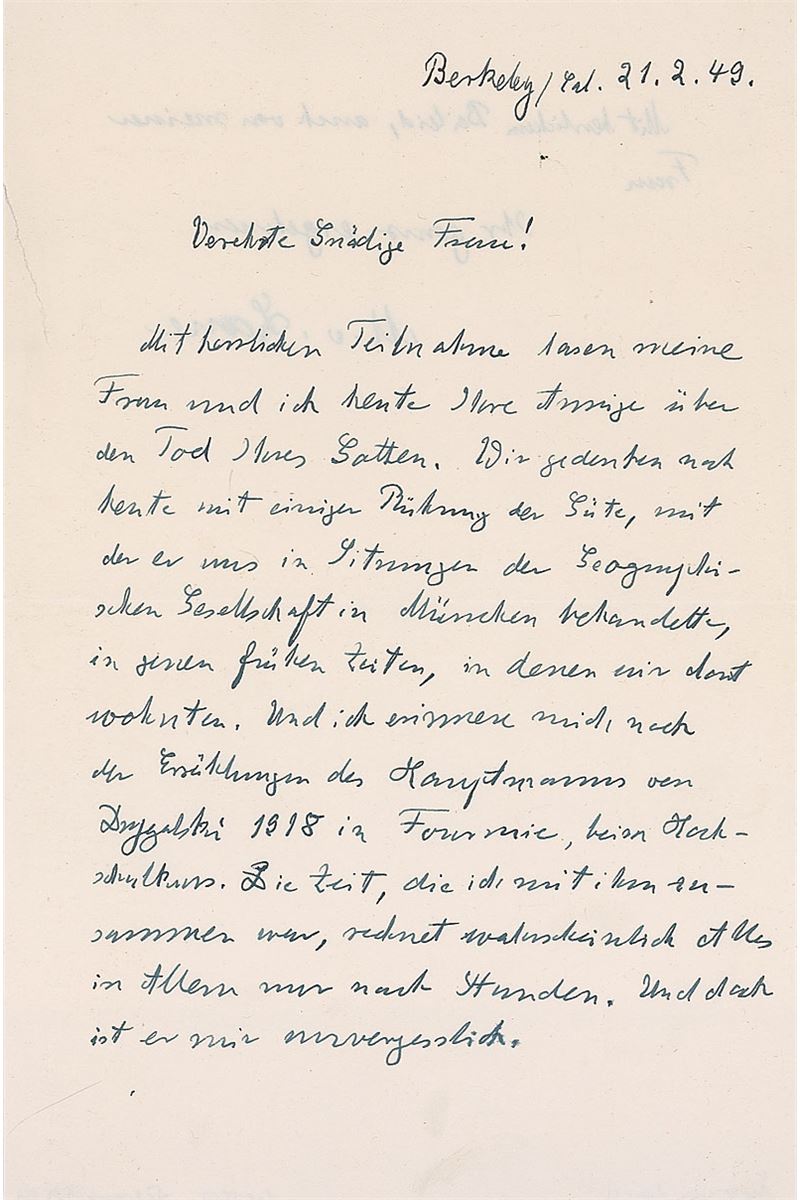 Berkeley/Cal. 21.2.49.
Verehrte Gnädige Frau!
Mit herzlichen Teilnahme lasen meine
Frau und ich heute Ihre Anzeige über
den Tod Ihres Gatten. Wir gedenken noch
heute mit einiger Rührung der Güte, mit
der er uns in Sitzungen der Geographi-
schen Gesellschaft in München behandelte,
in jenen frühen Zeiten, in denen wir dort
wohnten. Und ich erinnere mich noch
der Erzählungen des Hauptmanns von
Drygalski 1918 in Fourmie, beim Hoch-
schulkurs. Die Zeit, die ich mit ihm zu-
sammen war, rechnet wahrscheinlich Alles
in Allem nur nach Stunden. Und doch
ist er mir unvergesslich.
Mit herzlichem Beileid, auch von meiner
Frau
Ihr ganz ergebener